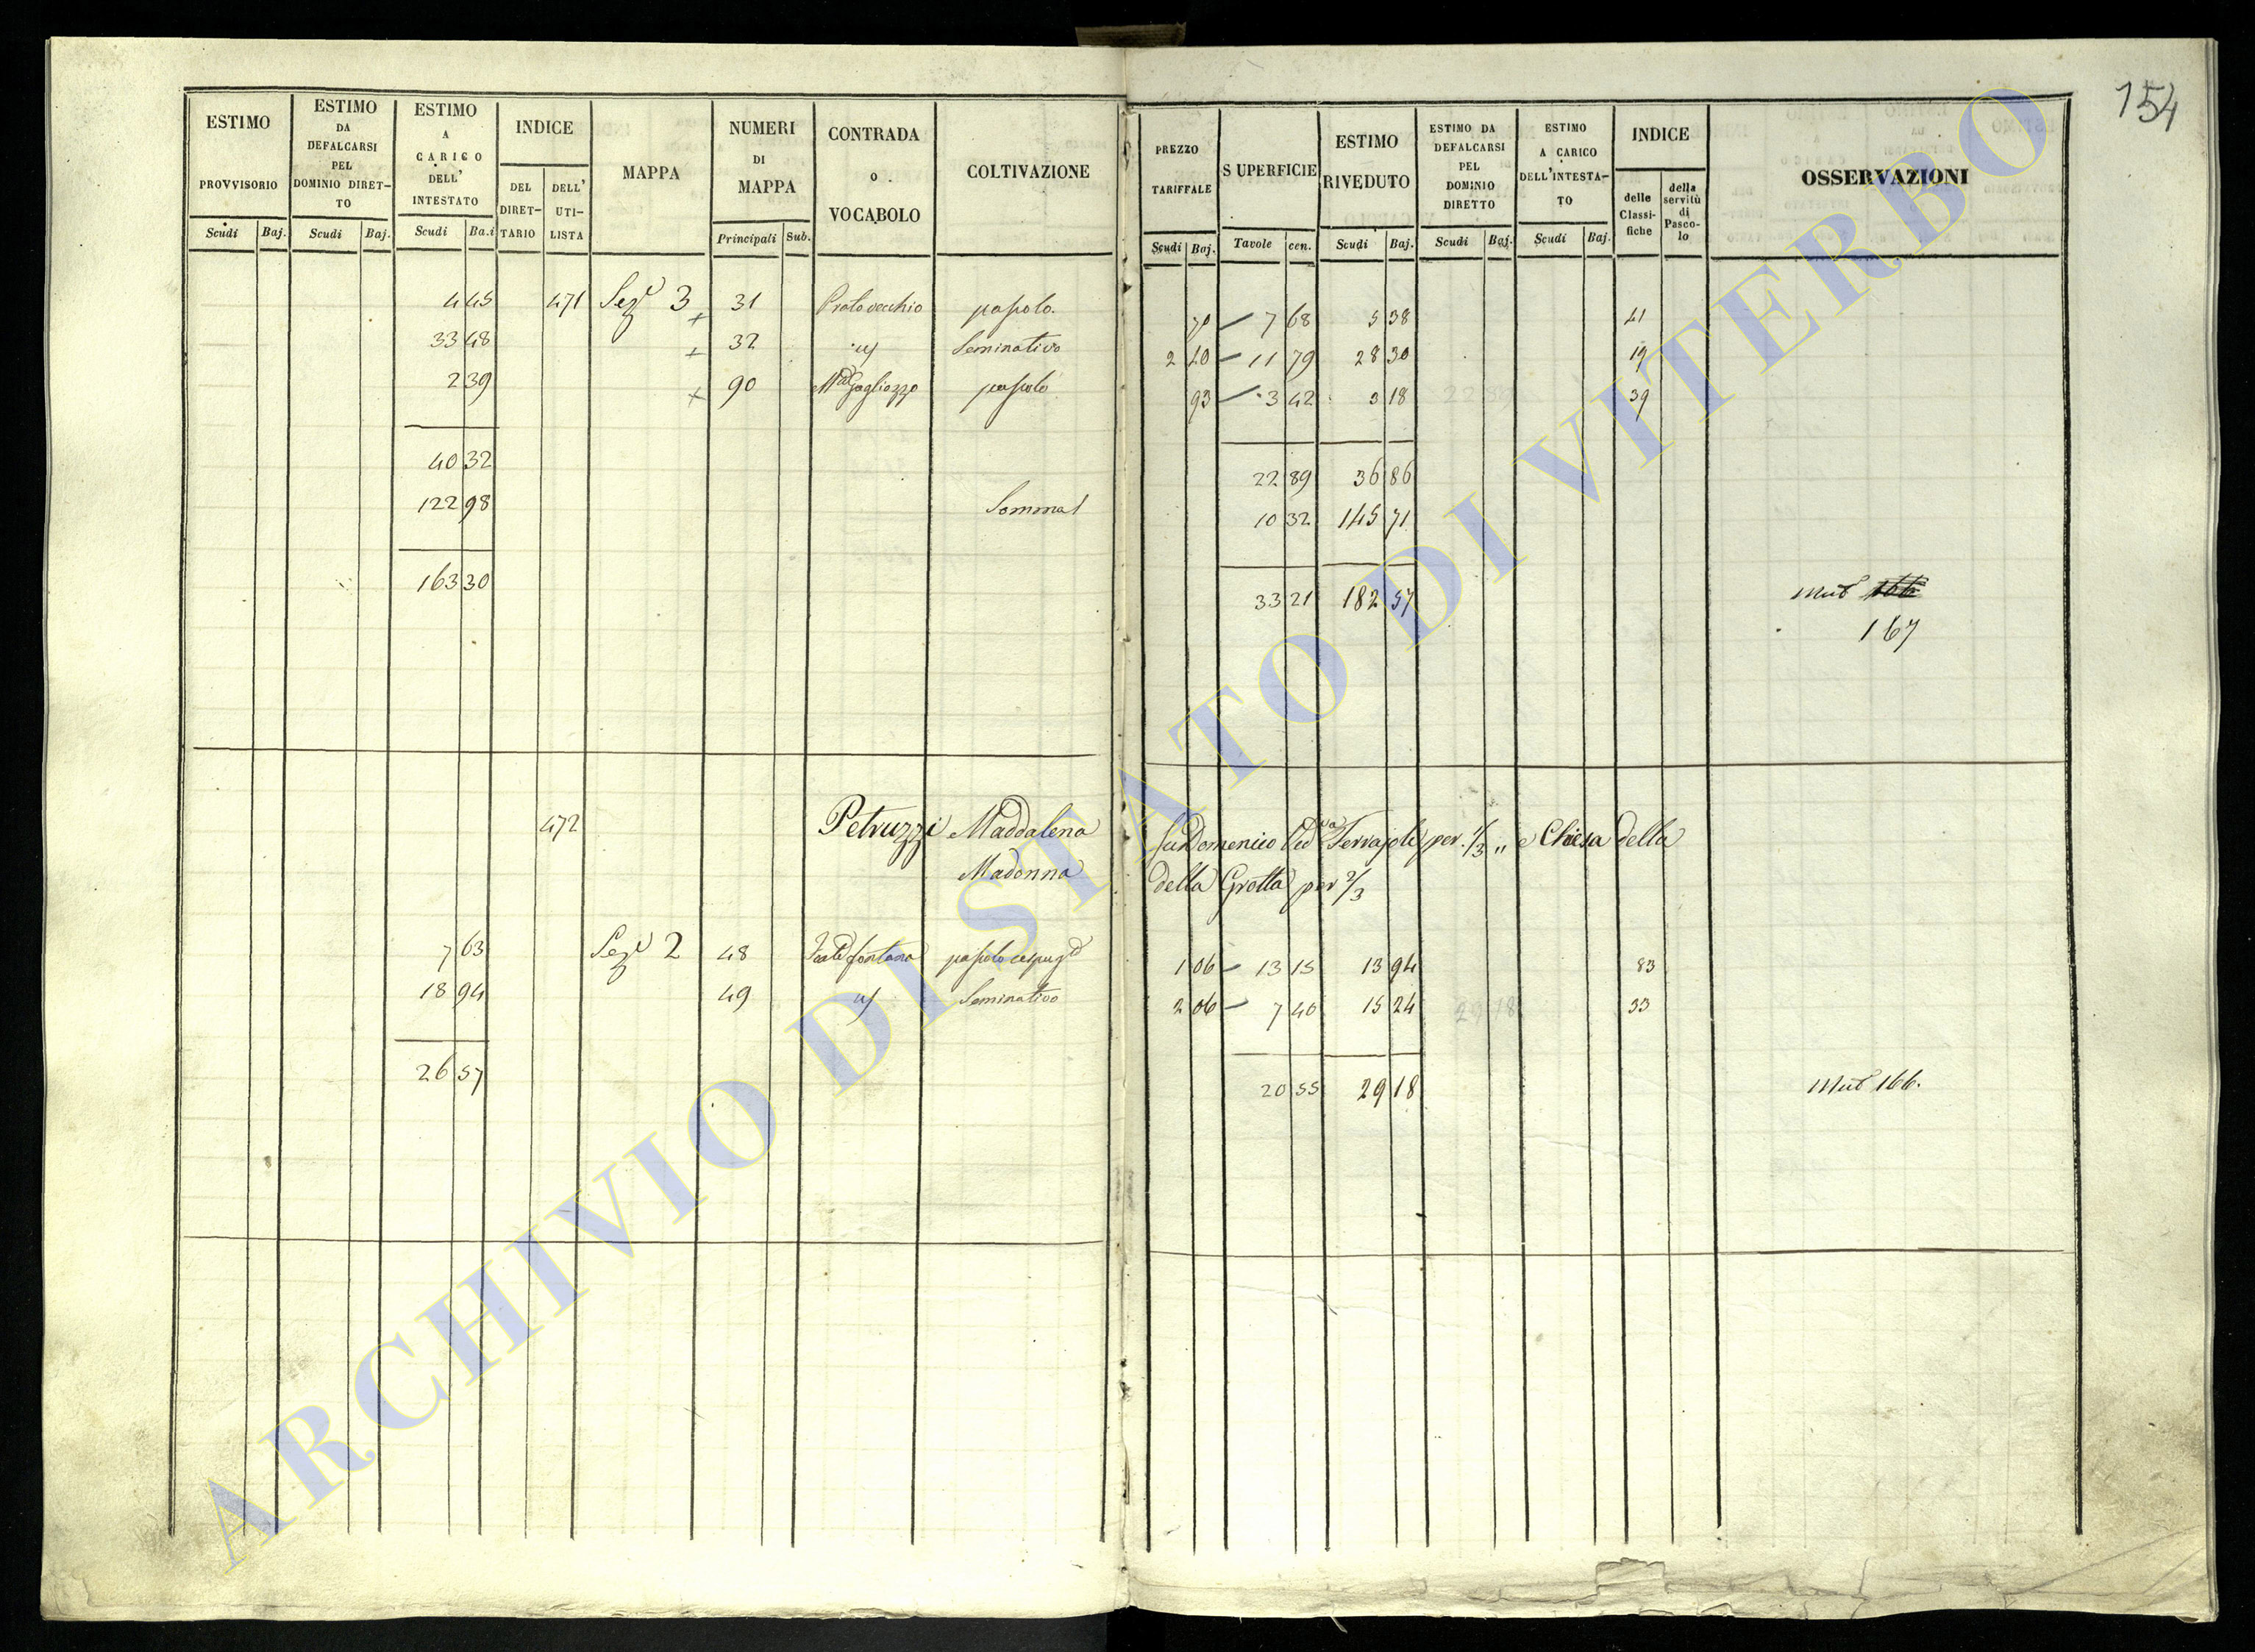 154
ESTIMO PROVVISORIO Scudi Baj.
ESTIMO DA DEFALCARSI PEL DOMINIO DIRET-TO Scudi Baj.
ESTIMO A CARICO DELL' INTESTATO Scudi Ba.i
INDICE DEL DIRET-TARIO DELL' UTI-LISTA
MAPPA
NUMERI DI MAPPA Principali Sub.
CONTRADA O VOCABOLO
COLTIVAZIONE
PREZZO TARIFFALE Scudi Baj.
SUPERFICIE Tavole cen.
ESTIMO RIVEDUTO Scudi Baj.
ESTIMO DA DEFALCARSI PEL DOMINIO DIRETTO Scudi Baj.
ESTIMO A CARICO DELL'INTESTA-TO Scudi Baj.
INDICE delle Classi-fiche della servitù di Pasco-lo
OSSERVAZIONI
4 45 471 Sez.e 3 + 31 Prato vecchio pascolo 70 7 68 5 38 41
33 48 + 32 Seminativo 2 40 11 79 28 30 19
2 39 + 90 pascolo 93 3 42 3 18 22 89 39
40 32 22 89 36 86
122 98 Somma 10 32 145 71
163 30 33 21 182 57 Mut 166
167
472 Petruzzi Maddalena fu Domenico Ved.va per 1/3 " e Chiesa della
Madonna della Grotta per 2/3
7 63 Sez.e 2 48 fontana pascolo cespug.to 1 06 13 15 13 94 83
18 94 49 Seminativo 2 06 7 40 15 24 29 18 33
26 57 20 55 29 18 Mut 166.
ARCHIVIO DI STATO DI VITERBO